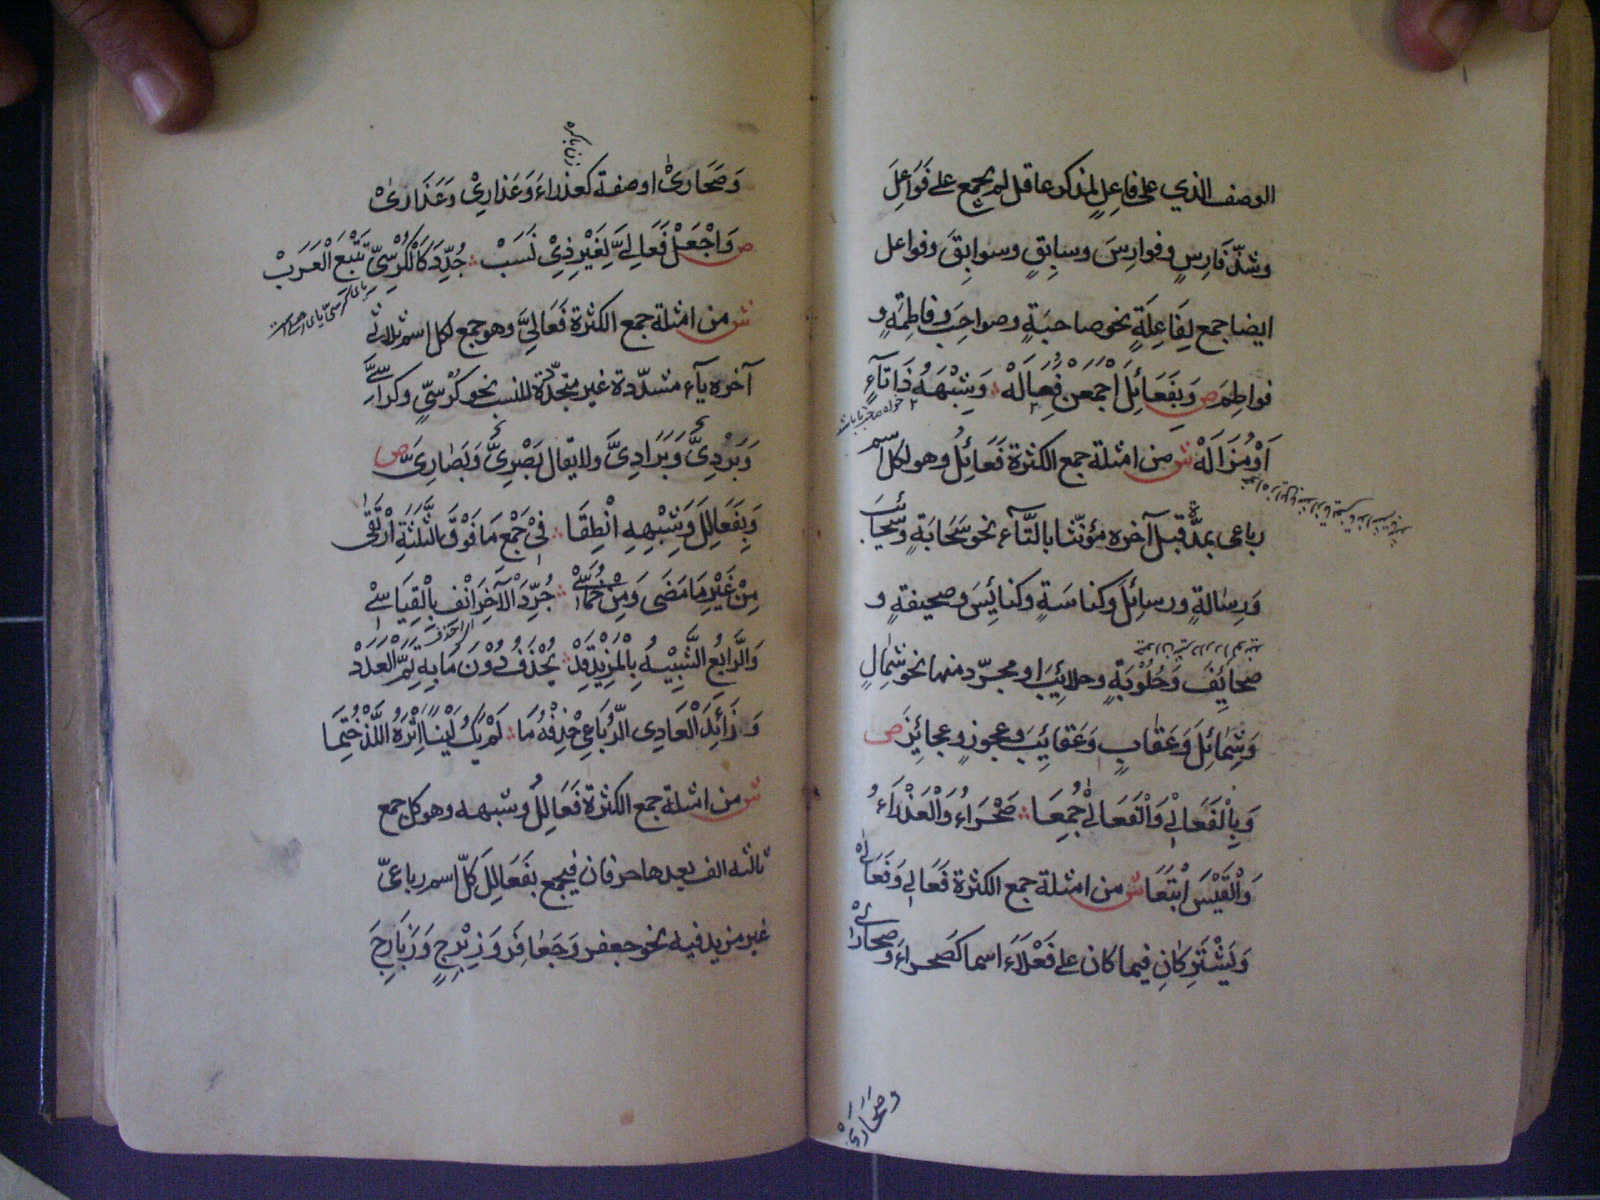 الوصف الذي على فاعِلٍ لمذكر عاقل لم يجمع على فَوَاعِلَ
وشذّ فَارِسٍ وفوارِسَ وسابِقٍ وسوابِقَ وفواعل
ايضا جمع لِفَاعِلَةٍ نحو صاحبَةٍ وصواحِبَ وفاطِمَةٍ و
فواطِمَ ص وَبِفَعَائِلَ اجْمَعَنْ فُعَِالَهْ وَشِبْهَهُ ذَا تَآءٍ
اَوْ مُزَالَهْ ش من امثلة جمع الكثرة فَعَائِلُ وهو لكل اسم
رباعى بمدّة قبل آخره مؤنّثا بالتَّآء نحو سَحَابَةٍ وسَحَائبَ
وَرِسٰالةٍ ورسائِلَ وكناسَةٍ وكنائِسَ وصحيفةٍ و
صَحائِفَ وَحُلُوْبَةٍ وحلائِبَ او مجرّد منها نحو شِمٰالٍ
وَشِمٰائِلَ وَعَقٰابٍ وَعَقائِبَ وعجوزٍ وعجائِزَ ص
وَبِالْفَعَالِيْ وَالْفَعَالىٰ جُمِعَا صَحْرَاءُ وَالْعَذْرَاءُ
وَالْقَيْسَ اتْبَعَا ش من امثلة جمع الكثرة فَعَالِي وَفَعَالىٰ
وَيَشْتَرِكانِ فيما كان على فَعْلَاَءَ اسما كَصَحراءَ وصحارِيْ
وَصَحَارىٰ
وَصَحَارىٰ او صفة كعذراءَ وَعَذارِيْ وعَذَارىٰ
زن باكره
ص وَاجْعَلْ فَعَالِيَّ لِغَيْرِ ذِيْ نَسَبْ جُدِّدَ كَالْكُرْسِيِّ تَتْبَعِ الْعَرَبْ
ش من امثلة جمع الكثرة فَعَالِيَّ وهو جمع لكل اسم ثلاثي
آخره يآء مشدّدة غير متجدّدة للنسب نحو كُرْسيٍّ وكَراسِيَّ
وَبَرْدِيٍّ وَبَرَادِيَّ ولا يقال بَصْرِيٌّ وَبَصَارِيَّ ص
وَبِفَعَالِلَ وَشِبْهِهِ انْطِقَا فِيْ جَمْعِ مَا فَوْقَ الثَّلٰثَةِ ارْتَقٰى
مِنْ غَيْرِ مَا مَضَى وَمِنْ خُمَاسِيْ جُرِّدَ الْآخِرَ انْفِ بِالْقِيَاسْ
وَالرَّابِعُ الشَّبِيْهُ بِالْمَزِيْدِ قَدْ يُحْذَفُ دُوْنَ مَا بِهِ تَمَّ الْعَدَدْ
وَزَائِدَ الْعَادِى الرُّبَاعِيْ حْذِفْهُ مَا لَمْ يَكُ لَيْنًا اِثْرَهُ اللَّذْ خَتَمَا
ش من امثلة جمع الكثرة فَعَالِلُ وشبهه وهو كل جمع
ثالثه الف بعدها حرفان فيجمع بفَعَالِلَ كلّ اسم رباعىّ
غير مزيد فيه نحو جعفر وَجَعٰافِرَ وَزِبْرِجٍ وَزَبَارِجَ